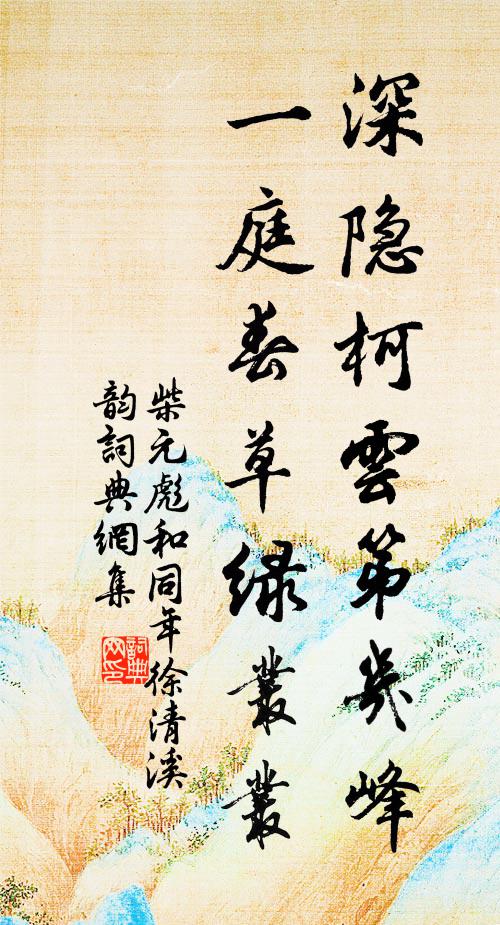 深隐柯雲第幾峰
一庭春草緑叢叢
柴元彪和同年徐清溪
韵詞典網集
詞典网印